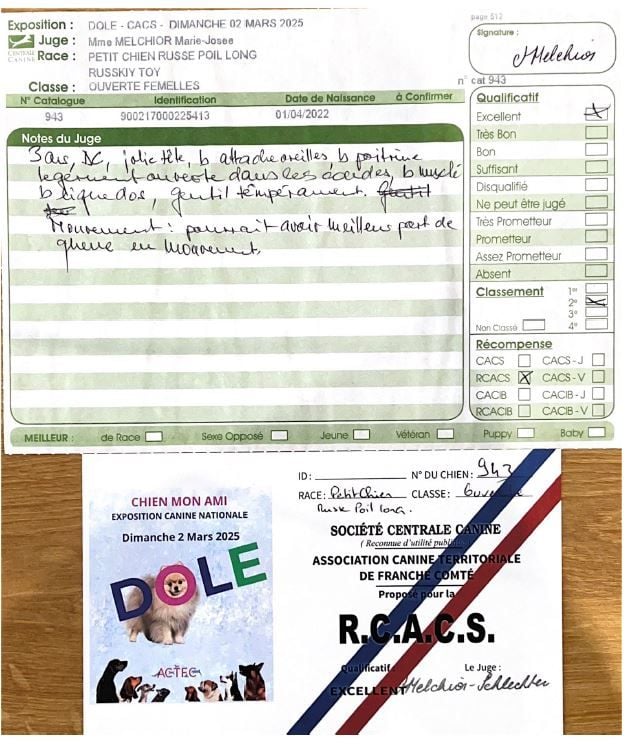 Exposition : DOLE - CACS - DIMANCHE 02 MARS 2025
page 513
Juge : Mme MELCHIOR Marie-Josée
Signature :
JMelchior
CENTRALE CANINE
Race : PETIT CHIEN RUSSE POIL LONG
RUSSKIY TOY
Classe : OUVERTE FEMELLES
n° cat 943
N° Catalogue Identification Date de Naissance à Confirmer
943 900217000225413 01/04/2022
Notes du Juge
3 ans, DC, jolie tête, b attache oreilles, b poitrine
legerment ouverte dans les coudes, b musclé
b ligne dos, gentil tempérament.
Mouvement : pourrait avoir meilleur port de
queue en mouvement.
Qualificatif
Excellent
Très Bon
Bon
Suffisant
Disqualifié
Ne peut être jugé
Très Prometteur
Prometteur
Assez Prometteur
Absent
Classement 1er
2e
3e
Non Classé 4e
Récompense
CACS CACS - J
RCACS X CACS - V
CACIB CACIB - J
RCACIB CACIB - V
MEILLEUR : de Race Sexe Opposé Jeune Vétéran Puppy Baby
CHIEN MON AMI
EXPOSITION CANINE NATIONALE
Dimanche 2 Mars 2025
DOLE
ACTFC
ID: N° DU CHIEN: 943
RACE: Petit Chien CLASSE: Ouverte
Russe Poil Long.
SOCIÉTÉ CENTRALE CANINE
( Reconnue d'utilité publique
ASSOCIATION CANINE TERRITORIALE
DE FRANCHE COMTÉ
Proposé pour la
R.C.A.C.S.
Qualificatif : Le Juge :
EXCELLENT Melchior-Schlechter